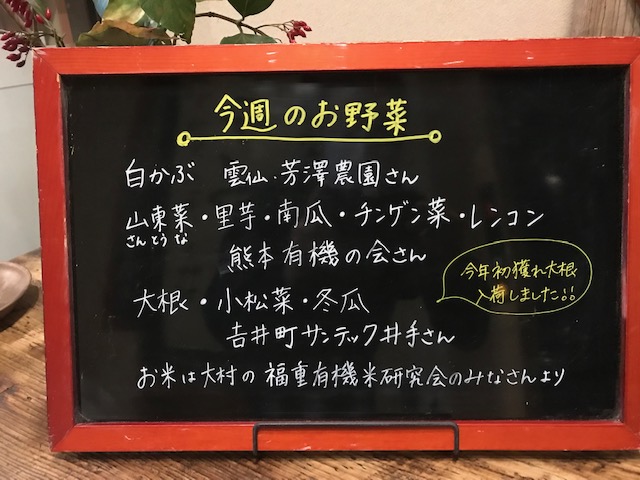 今週のお野菜
白かぶ 雲仙・芳澤農園さん
山東菜・里芋・南瓜・チンゲン菜・レンコン
さんとうな
熊本有機の会さん
今年初獲れ大根
入荷しました!!
大根・小松菜・冬瓜
吉井町サンテック井手さん
お米は大村の福重有機米研究会のみなさんより